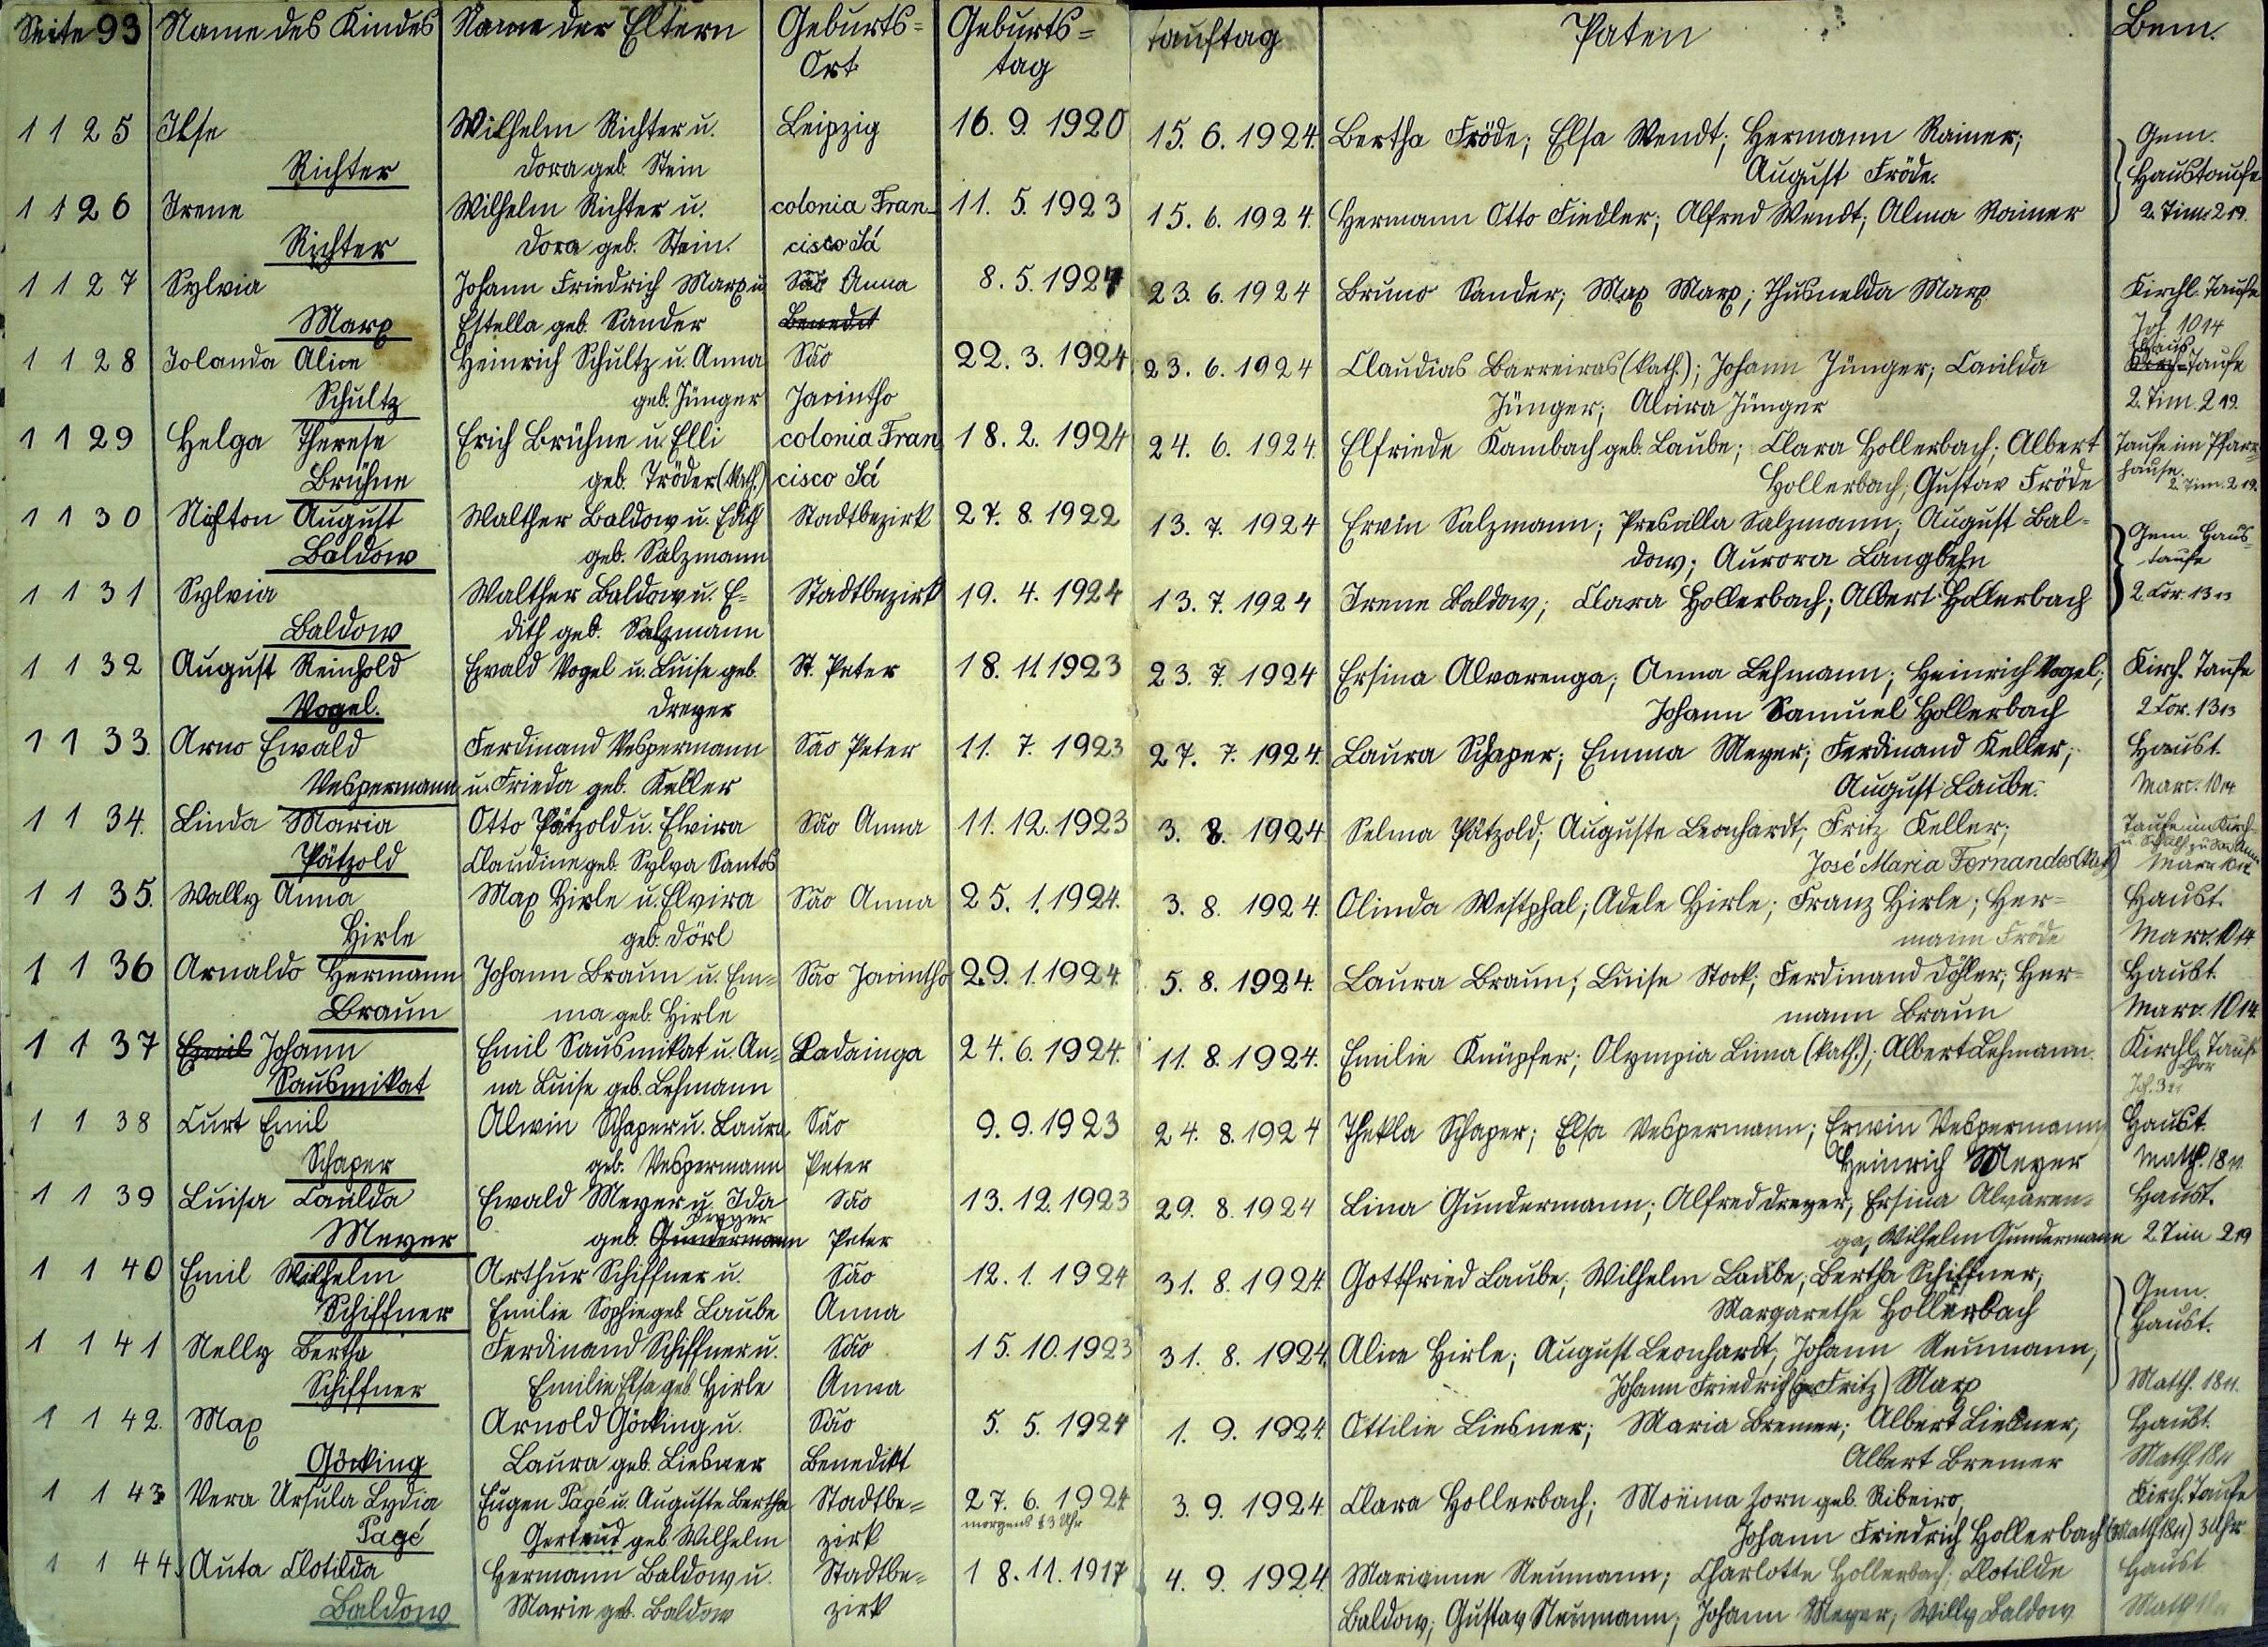 Seite 93 Name des Kindes Name der Eltern Geburts= Geburts= tauftag Paten Bem.
Ort tag
1125 Ilse Wilhelm Richter u. Leipzig 16. 9. 1920 15. 6. 1924. Bertha Fröde; Elsa Wendt; Hermann Rainer; Gem.
Richter dora geb. Stein August Fröde. Haustaufe
1126 Irene Wilhelm Richter u. colonia Fran- 11. 5. 1923 15. 6. 1924. Hermann Otto Fiedler; Alfred Wendt; Alma Rainer 2. Tim. 2 19.
Richter dora geb. Stein. cisco Sá
1127 Sylvia Johann Friedrich Marx u São Anna 8. 5. 1924 23. 6. 1924 Bruno Sander; Max Marx; Thusnelda Marx Kirchl. Taufe
Marx Estella geb. Sander Benedit Joh. 10 14
1128 Iolanda Alice Heinrich Schultz u. Anna São 22. 3. 1924 23. 6. 1924 Claudias Barreiras (kath.); Johann Jünger; Canilda Haus Taufe
Schultz geb. Jünger Jacintho Jünger; Alcira Jünger 2. Tim. 2 19.
1129 Helga Therese Erich Brühne u. Elli colonia Fran 18. 2. 1924 24. 6. 1924. Elfriede Kambach geb. Laube; Clara Hollerbach; Albert Taufe im Pfarr-
Brühne geb. Tröder (kath.) cisco Sá Hollerbach; Gustav Fröde hause. 2. Tim. 2 19.
1130 August Walther Baldow u. Edith Stadtbezirk 27. 8. 1922 13. 7. 1924 Ervin Salzmann; Prescilla Salzmann; August Bal= Gem. Haus-
Baldow geb. Salzmann dow; Aurora Langbehn taufe
1131 Sylvia Walther Baldow u. E= Stadtbezirk 19. 4. 1924 13. 7. 1924 Irene Baldow; Clara Hollerbach; Albert Hollerbach 2. Cor. 13 13
Baldow dith geb. Salzmann
1132 August Reinhold Ewald Vogel u. Luise geb. St. Peter 18. 11. 1923 23. 7. 1924 Ersina Alvarenga; Anna Lehmann; Heinrich Vogel; Kirch. Taufe
Vogel. dreyer Johann Samuel Hollerbach 2 Cor. 13 13
1133. Arno Ewald Ferdinand Vespermann São Peter 11. 7. 1923 27. 7. 1924. Laura Schaper; Emma Meyer; Ferdinand Keller; Haust.
Vespermann u. Frieda geb. Keller August Laube. Marc. 10 14
1134. Linda Maria Otto Pätzold u. Elvira São Anna 11. 12. 1923 3. 8. 1924 Selma Pätzold; Auguste Leonhardt; Fritz Keller; Taufe im Kirch-
Pätzold Claudine geb. Sylva Santos José Maria Fernandes (kath)
1135. Wally Anna Max Hirle u. Elvira São Anna 25. 1. 1924. 3. 8. 1924. Olinda Westphal; Adele Hirle; Franz Hirle; Her= Haust.
Hirle geb. dörl mann Fröde Marc. 10 14
1136 Arnaldo Hermann Johann Braun u. Em= São Jacintho 29. 1. 1924. 5. 8. 1924. Laura Braun; Luise Stock; Ferdinand Döhler; Her= Haust.
Braun ma geb. Hirle mann Braun Marc. 10 14.
1137 Emil Johann Emil Sausmikat u. An= Ladainga 24. 6. 1924. 11. 8. 1924. Emilie Knüpfer; Olympia Lima (kath.); Albert Lehmann. Kirchl. Taufe
Sausmikat na Luise geb. Lehmann
1138 Curt Emil Alwin Schaper u. Laura São 9. 9. 1923 24. 8. 1924 Thekla Schaper; Elsa Vespermann; Erwin Vespermann Haust.
Schaper geb. Vespermann Peter Heinrich Meyer Matth. 18 11.
1139 Luisa Canilda Ewald Meyer u. Ida São 13. 12. 1923 29. 8. 1924 Lina Gundermann; Alfred dreyer; Ersina Alvaren= Haust.
Meyer geb. Gundermann dreyer Peter ga; Wilhelm Gundermann 2. Tim 2 19
1140 Emil Wilhelm Arthur Schiffner u. São 12. 1. 1924 31. 8. 1924. Gottfried Laube; Wilhelm Laube; Bertha Schiffner; Gem.
Schiffner Emilie Sophie geb Laube Anna Margarethe Hollerbach Haust.
1141 Nelly Bertha Ferdinand Schiffner u. São 15. 10. 1923 31. 8. 1924. Alice Hirle; August Leonhardt; Johann Neumann;
Schiffner Emilie Elsa geb. Hirle Anna Johann Friedrich (Fritz) Marx Matth. 18 11.
1142. Max Arnold Göcking u. São 5. 5. 1924 1. 9. 1924. Ottilie Liesner; Maria Bremer; Albert Liesner; Haust.
Göcking Laura geb. Liesner Benedikt Albert Bremer Matth. 18 11
1143 Vera Ursula Lydia Eugen Pagé u. Auguste Bertha Stadtbe= 27. 6. 1924 3. 9. 1924 Clara Hollerbach; Moëma Zorn geb. Ribeiro; Kirch. Taufe
Pagé Gertrud geb. Wilhelm zirk morgens 3 Uhr Johann Friedrich Hollerbach (Matth 18 11) 3 Uhr
1144. Auta Clotilda Hermann Baldow u. Stadtbe= 18. 11. 1917 4. 9. 1924 Marianne Neumann; Charlotte Hollerbach; Clotilde Haust
Baldow Marie geb. Baldow zirk Baldow; Gustav Neumann; Johann Meyer; Willy Baldow Matth